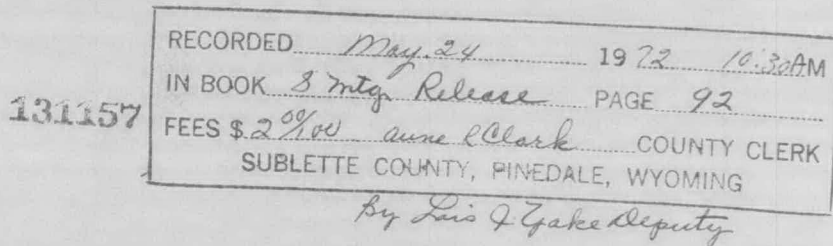 RECORDED May. 24 1972 10:30AM
IN BOOK 8 Mtg. Release PAGE 92
131157
FEES $ 2 00/00 Anne R Clark COUNTY CLERK
SUBLETTE COUNTY, PINEDALE, WYOMING
By Lois J. Deputy